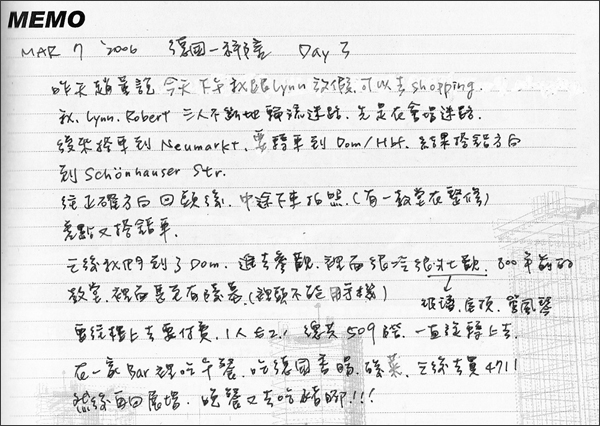 MEMO
MAR 7 '2006 德國－科隆 Day 3
昨天趙董說今天下午我跟Lynn放假,可以去shopping.
我、Lynn、Robert 三人不斷地輪流迷路,先是在會場迷路.
後來搭車到Neumarkt、要轉車到Dom/Hbf.結果搭錯方向
到Schönhauser Str.
往正確方向回頭後,中途下車拍照.(有一教堂在整修)
差點又搭錯車.
之後我們到了Dom.進去參觀,裡面很冷很壯觀,800年前的
教堂.裡面還有 (裡頭不能用手機)
玻璃、屋頂、管風琴
要往樓上去要付費,1人€2.總共509階,一直往轉上去.
在一家Bar裡吃午餐,吃德國香腸、酸菜 之後去買4711
然後再回展場,晚餐又去吃豬腳!!!